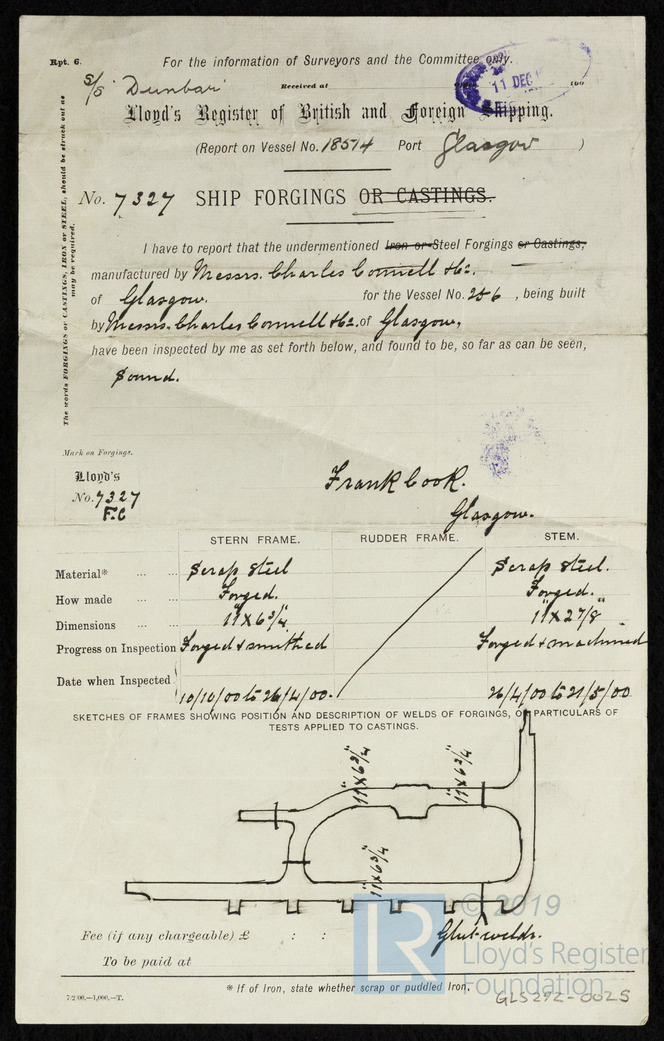 Rpt. 6.
For the information of Surveyors and the Committee only.
S/S "Dunbar"
Received at
11 DEC
190
Lloyd's Register of British and Foreign Shipping.
(Report on Vessel No. 18574 Port Glasgow )
The words FORGINGS or CASTINGS, IRON or STEEL, should be struck out as may be required.
No. 7327 SHIP FORGINGS OR CASTINGS.
I have to report that the undermentioned Iron or Steel Forgings or Castings,
manufactured by Messrs. Charles Connell & Co.
of Glasgow. for the Vessel No. 256, being built
by Messrs. Charles Connell & Co. of Glasgow,
have been inspected by me as set forth below, and found to be, so far as can be seen,
Sound.
Mark on Forgings.
Lloyd's
No. 7327
F.C
Frank Cook.
Glasgow.
STERN FRAME. RUDDER FRAME. STEM.
Material* ... ... Scrap Steel Scrap Steel.
How made ... ... Forged. Forged.
Dimensions ... ... 11" x 6 3/4" 11" x 2 7/8"
Progress on Inspection Forged & smithed Forged & machined
Date when Inspected 10/10/00 to 26/4/00. 26/4/00 to 21/5/00
SKETCHES OF FRAMES SHOWING POSITION AND DESCRIPTION OF WELDS OF FORGINGS, OR PARTICULARS OF
TESTS APPLIED TO CASTINGS.
11" x 6 3/4"
11" x 6 3/4"
11" x 6 3/4"
Glut welds.
Fee (if any chargeable) £ : :
To be paid at
* If of Iron, state whether scrap or puddled Iron.
7/2/00.—1,000.—T.
GLS292-0025
LR
© 2019
Lloyd's Register
Foundation